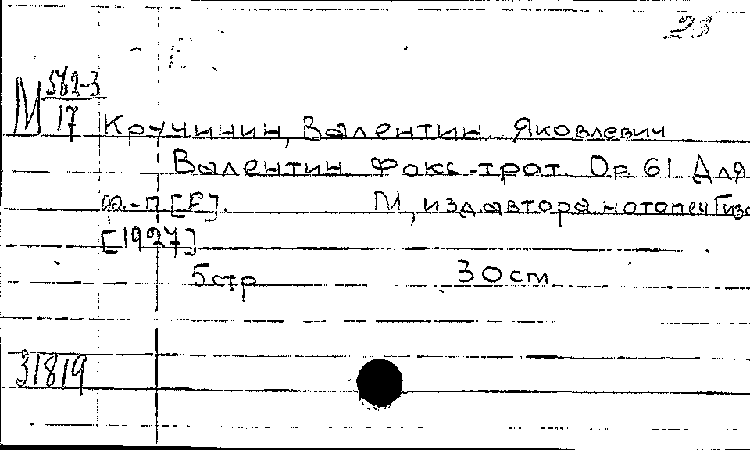 23
М 562-3
17
Кручинин, Валентин Яковлевич
Валентин. Фокс-трот. Op 61 Для
ф.-п [E]. М, изд автора нотопеч Гиза
[1927]
5 стр 30 см
31819